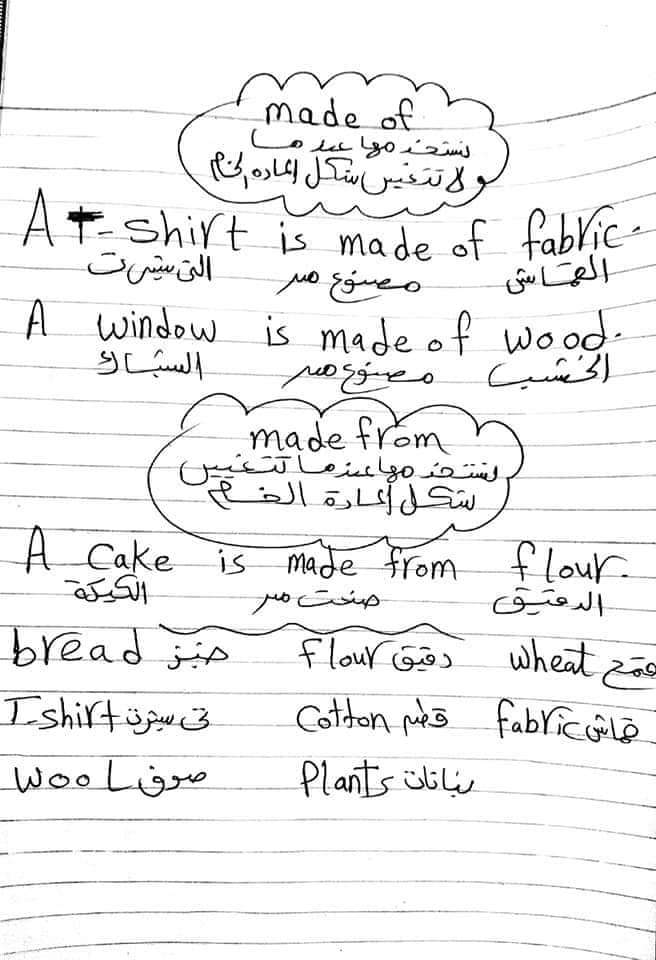 made of
نستخدمها عندما
لا تتغير شكل المادة الخام
A T-shirt is made of fabric.
التي شيرت مصنوع من القماش
A window is made of wood.
الشباك مصنوع من الخشب
made from
نستخدمها عندما تتغير
شكل المادة الخام
A Cake is made from flour.
الكيكة صنعت من الدقيق
bread خبز flour دقيق wheat قمح
T-shirt تي شيرت Cotton قطن fabric قماش
wool صوف Plants نباتات